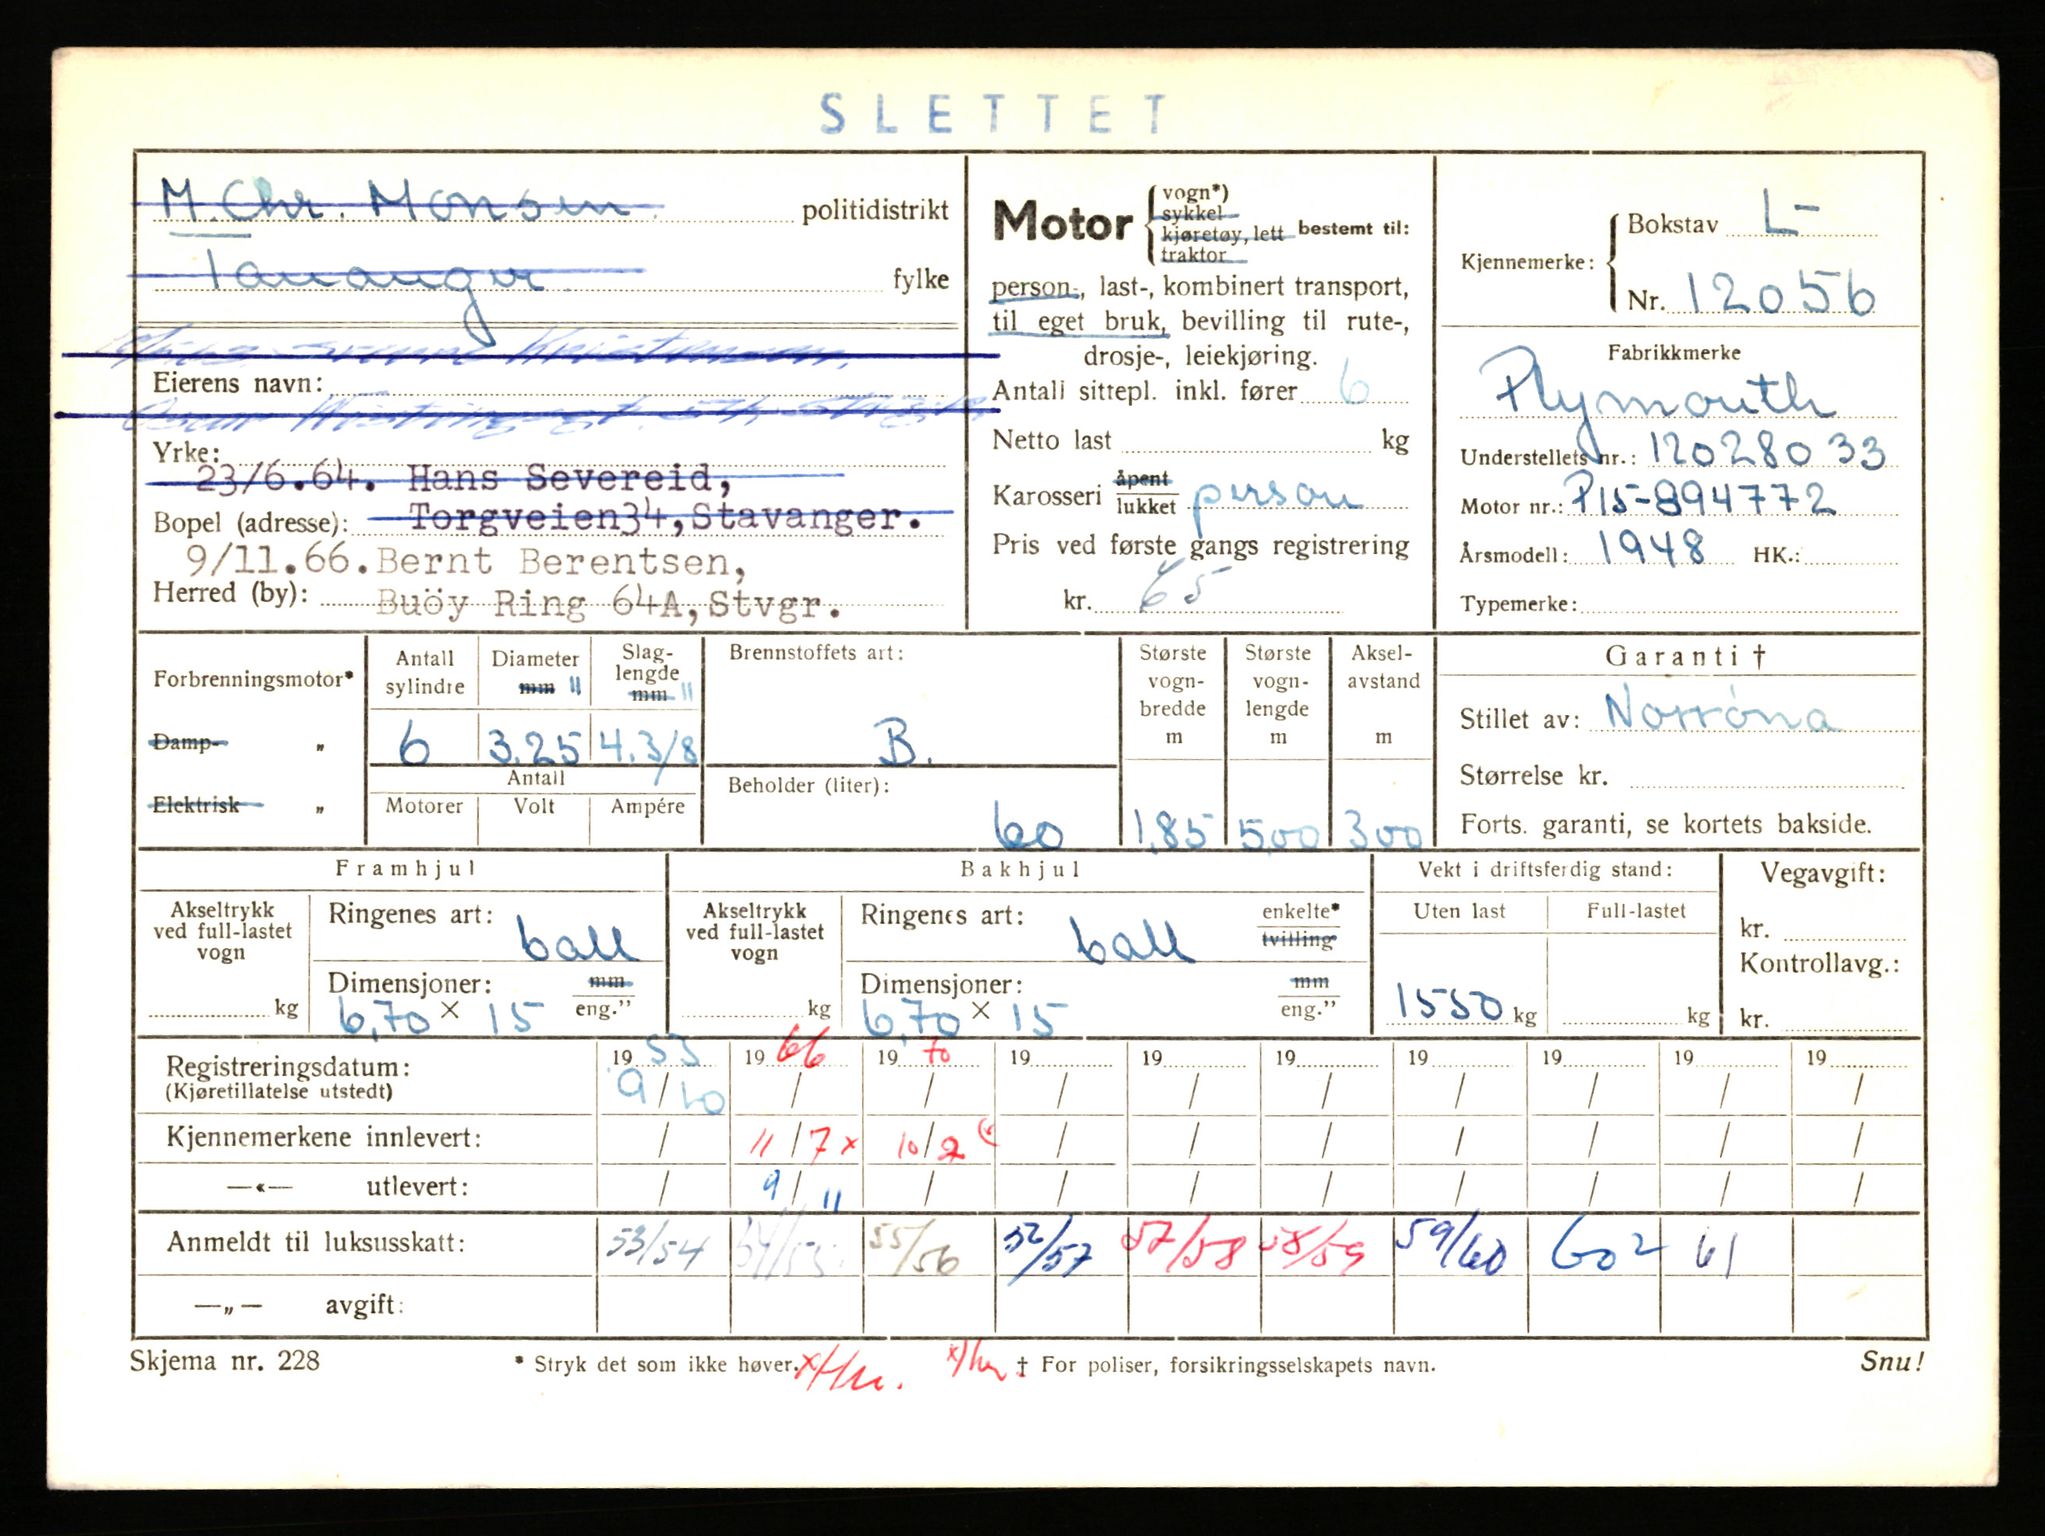 SLETTET
M. Chr. Monsen politidistrikt
Tananger fylke
Eierens navn:
Yrke:
23/6.64. Hans Severeid,
Bopel (adresse): Torgveien34, Stavanger.
9/11.66. Bernt Berentsen,
Herred (by): Buöy Ring 64A, Stvgr.
Motor vogn*) sykkel kjøretøy, lett traktor bestemt til:
person-, last-, kombinert transport,
til eget bruk, bevilling til rute-,
drosje-, leiekjøring.
Antall sittepl. inkl. fører 6
Netto last kg
Karosseri åpent lukket person
Pris ved første gangs registrering
kr. 65
Kjennemerke: Bokstav L-
Nr. 12056
Fabrikkmerke
Plymouth
Understellets nr.: 12028033
Motor nr.: P15-894772
Årsmodell: 1948 HK.:
Typemerke:
Forbrenningsmotor*
Damp- „
Elektrisk „
Antall sylindre 6
Diameter mm " 3.25
Slaglengde mm " 4.3/8
Antall
Motorer Volt Ampére
Brennstoffets art:
B.
Beholder (liter):
60
Største vognbredde m 1,85
Største vognlengde m 5,00
Akselavstand m 300
Garanti †
Stillet av: Norrøna
Størrelse kr.
Forts. garanti, se kortets bakside.
Framhjul
Akseltrykk ved full-lastet vogn kg
Ringenes art: ball
Dimensjoner: mm eng."
6,70 × 15
Bakhjul
Akseltrykk ved full-lastet vogn kg
Ringenes art: ball enkelte* tvilling
Dimensjoner: mm eng."
6,70 × 15
Vekt i driftsferdig stand:
Uten last Full-lastet
1550 kg kg
Vegavgift:
kr.
Kontrollavg.:
kr.
Registreringsdatum: 1953 1966 1970 19 19 19 19 19 19 19
(Kjøretillatelse utstedt) 9/10 / / / / / / / / /
Kjennemerkene innlevert: / 11/7 x 10/2 / / / / / / /
—«— utlevert: / 9/11 / / / / / / / /
Anmeldt til luksusskatt: 53/54 54/55 55/56 52/57 57/58 58/59 59/60 602 61
—„— avgift:
Skjema nr. 228 * Stryk det som ikke høver. † For poliser, forsikringsselskapets navn. Snu!